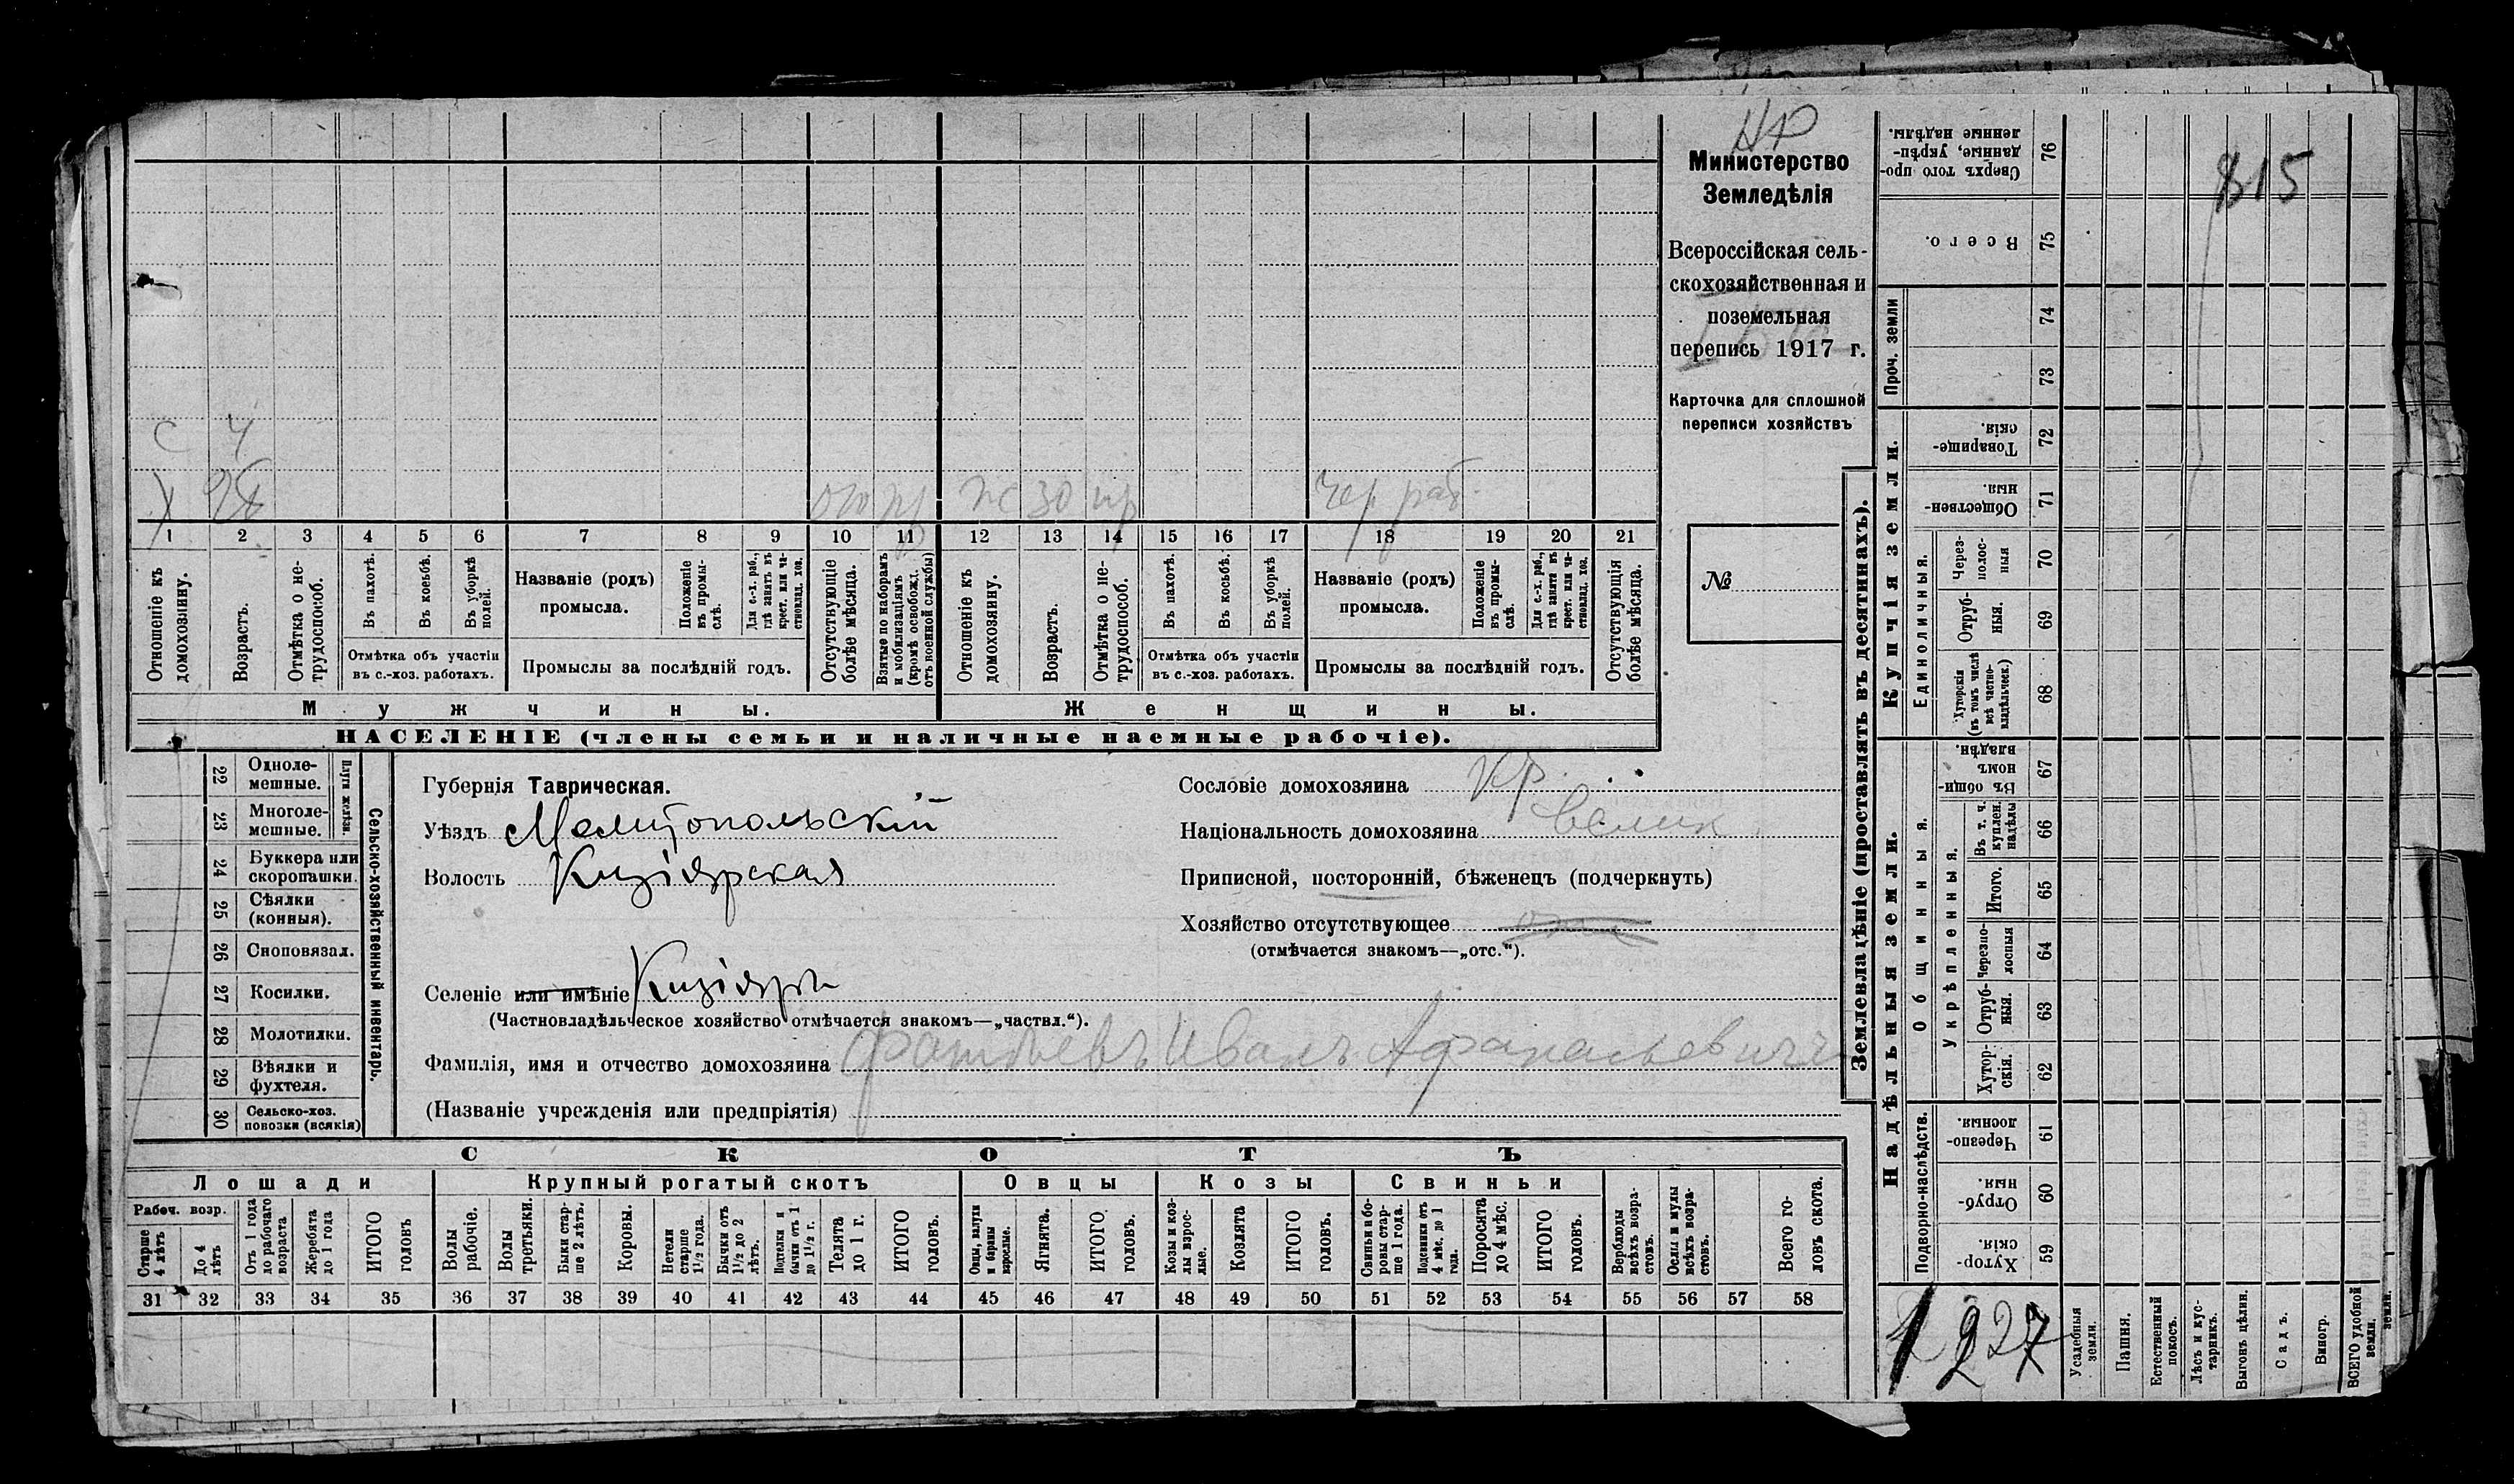 НР
Министерство
Земледѣлія
Всероссійская сель-
скохозяйственная и
поземельная
перепись 1917 г.
Карточка для сплошной
переписи хозяйствъ
№
815
С 4
Х 28 ж 30 чер раб.
1 2 3 4 5 6 7 8 9 10 11 12 13 14 15 16 17 18 19 20 21
Отношеніе къ домохозяину.
Возрастъ.
Отмѣтка о не-трудоспособ.
Въ пахотѣ.
Въ косьбѣ.
Въ уборкѣ полей.
Отмѣтка объ участіи
въ с.-хоз. работахъ.
Названіе (родъ)
промысла.
Положеніе въ промы-слѣ.
Для с.-х. раб., гдѣ занятъ въ крест. или ча-стновлад. хоз.
Промыслы за послѣдній годъ.
Отсутствующіе болѣе мѣсяца.
Взятые по наборамъ и мобилизаціямъ (кромѣ освобожд. отъ военной службы)
Отношеніе къ домохозяину.
Возрастъ.
Отмѣтка о не-трудоспособ.
Въ пахотѣ.
Въ косьбѣ.
Въ уборкѣ полей.
Отмѣтка объ участіи
въ с.-хоз. работахъ.
Названіе (родъ)
промысла.
Положеніе въ промы-слѣ.
Для с.-х. раб., гдѣ занята въ крест. или ча-стновлад. хоз.
Промыслы за послѣдній годъ.
Отсутствующія болѣе мѣсяца.
Мужчины.
Женщины.
НАСЕЛЕНІЕ (члены семьи и наличные наемные рабочіе).
Сельско-хозяйственный инвентарь.
Плуги желѣзн.
22 Одноле-мешные.
23 Многоле-мешные.
24 Буккера или скоропашки.
25 Сѣялки (конныя).
26 Сноповязал.
27 Косилки.
28 Молотилки.
29 Вѣялки и фухтеля.
30 Сельско-хоз. повозки (всякія)
Губернія Таврическая.
Уѣздъ Мелитопольскій
Волость Кизіярская
Селеніе или имѣніе Кизіяръ
(Частновладѣльческое хозяйство отмѣчается знакомъ—„частвл.“).
Фамилія, имя и отчество домохозяина Фатѣевъ Иванъ Афанасьевичъ
(Названіе учрежденія или предпріятія)
Сословіе домохозяина кр.
Національность домохозяина велик
Приписной, посторонній, бѣженецъ (подчеркнуть)
Хозяйство отсутствующее
(отмѣчается знакомъ—„отс.“).
СКОТЪ
Лошади
Крупный рогатый скотъ
Овцы
Козы
Свиньи
Рабоч. возр.
Старше 4 лѣтъ
До 4 лѣтъ
Отъ 1 года до рабочаго возраста
Жеребята до 1 года
ИТОГО головъ
Волы рабочіе.
Волы третьяки.
Быки стар-ше 2 лѣтъ.
Коровы.
Нетели старше 1½ года.
Бычки отъ 1½ до 2 лѣтъ.
Подтелки и бычки отъ 1 до 1½ г.
Телята до 1 г.
ИТОГО головъ.
Овцы, валухи и бараны взрослые.
Ягнята.
ИТОГО головъ.
Козы и коз-лы взрос-лые.
Козлята
ИТОГО головъ.
Свиньи и бо-ровы стар-ше 1 года.
Подсвинки отъ 4 мѣс. до 1 года.
Поросята до 4 мѣс.
ИТОГО головъ.
Верблюды всѣхъ возра-стовъ.
Ослы и мулы всѣхъ возра-стовъ.
Всего го-ловъ скота.
31 32 33 34 35 36 37 38 39 40 41 42 43 44 45 46 47 48 49 50 51 52 53 54 55 56 57 58
Землевладѣніе (проставлять въ десятинахъ).
Купчія земли.
Надѣльныя земли.
Проч. земли
Сверхъ того про-данные, укрѣп-ленные надѣлы. 76
Всего. 75
74
73
Товарище-скія. 72
Обществен-ныя. 71
Единоличныя.
Через-полос-ныя 70
Отруб-ныя. 69
Хуторскія (въ томъ числѣ всѣ частно-владѣльческ.) 68
Общинныя.
Въ общин-номъ владѣн. 67
Укрѣпленныя.
Въ т. ч. куплен. надѣлы 66
Итого. 65
Черезпо-лосныя 64
Отруб-ныя. 63
Хутор-скія. 62
Подворно-наслѣдств.
Черезпо-лосныя. 61
Отруб-ныя. 60
Хутор-скія. 59
227
Усадебныя земли.
Пашня.
Естественный покосъ.
Лѣсъ и кус-тарникъ.
Выгонъ цѣлин.
Садъ.
Виногр.
ВСЕГО удобной земли.